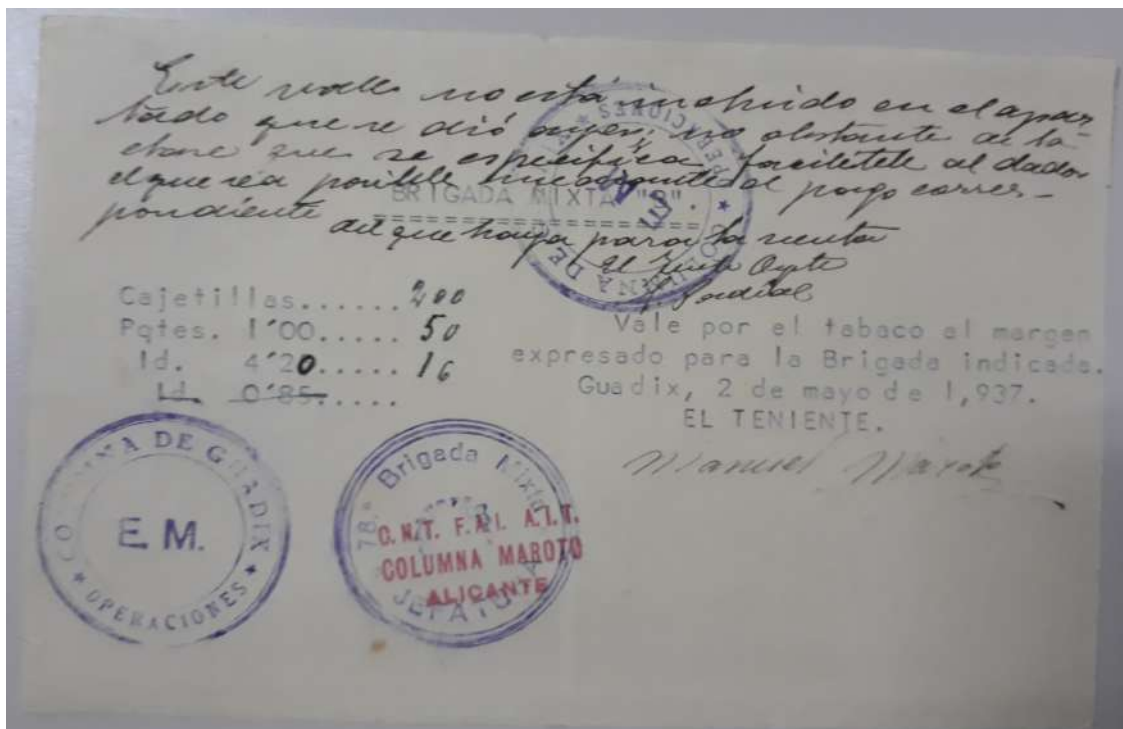 Este valle no está incluido en el apar-
tado que se dió ayer; no obstante de la
clase que se especifica facilitele al dador
el que sea posible al pago corres-
pondiente
BRIGADA MIXTA "B".
del que haya para la venta
El
Cajetillas...... 200
Pqtes. 1'00..... 50
Id. 4'20..... 16
Id. 0'85.....
Vale por el tabaco al margen
expresado para la Brigada indicada.
Guadix, 2 de mayo de 1,937.
EL TENIENTE.
Manuel Maroto
COLUMNA DE GUADIX
E. M.
* OPERACIONES *
78.ª Brigada Mixta
JEFATURA
C.N.T. F.A.I. A.I.T.
COLUMNA MAROTO
ALICANTE